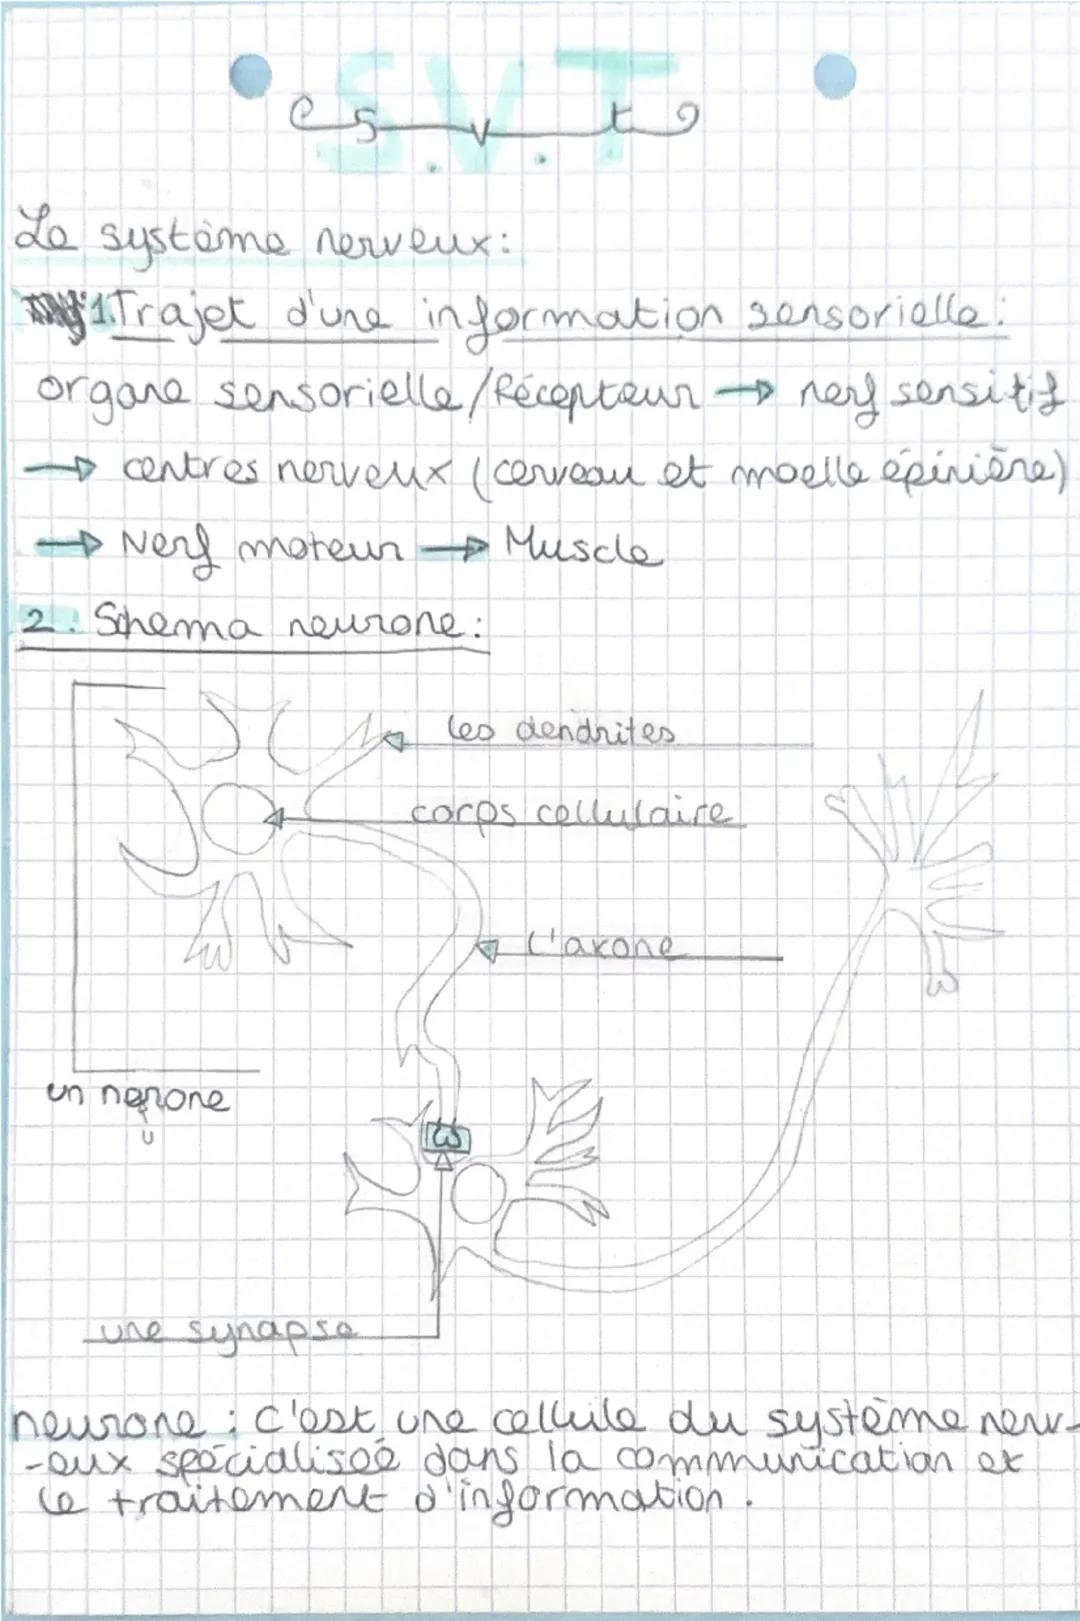 S.V.T
s v t
Le système nerveux:
1. Trajet d'une information sensorielle:
organe sensorielle/Récepteur → nerf sensitif
→ centres nerveux (cerveau et moelle épinière)
→ Nerf moteur → Muscle
2. Schema neurone:
les dendrites
corps cellulaire
l'axone
un nerone
u
une synapse
neurone : c'est une cellule du système nerv-
-eux spécialisée dans la communication et
le traitement d'information.